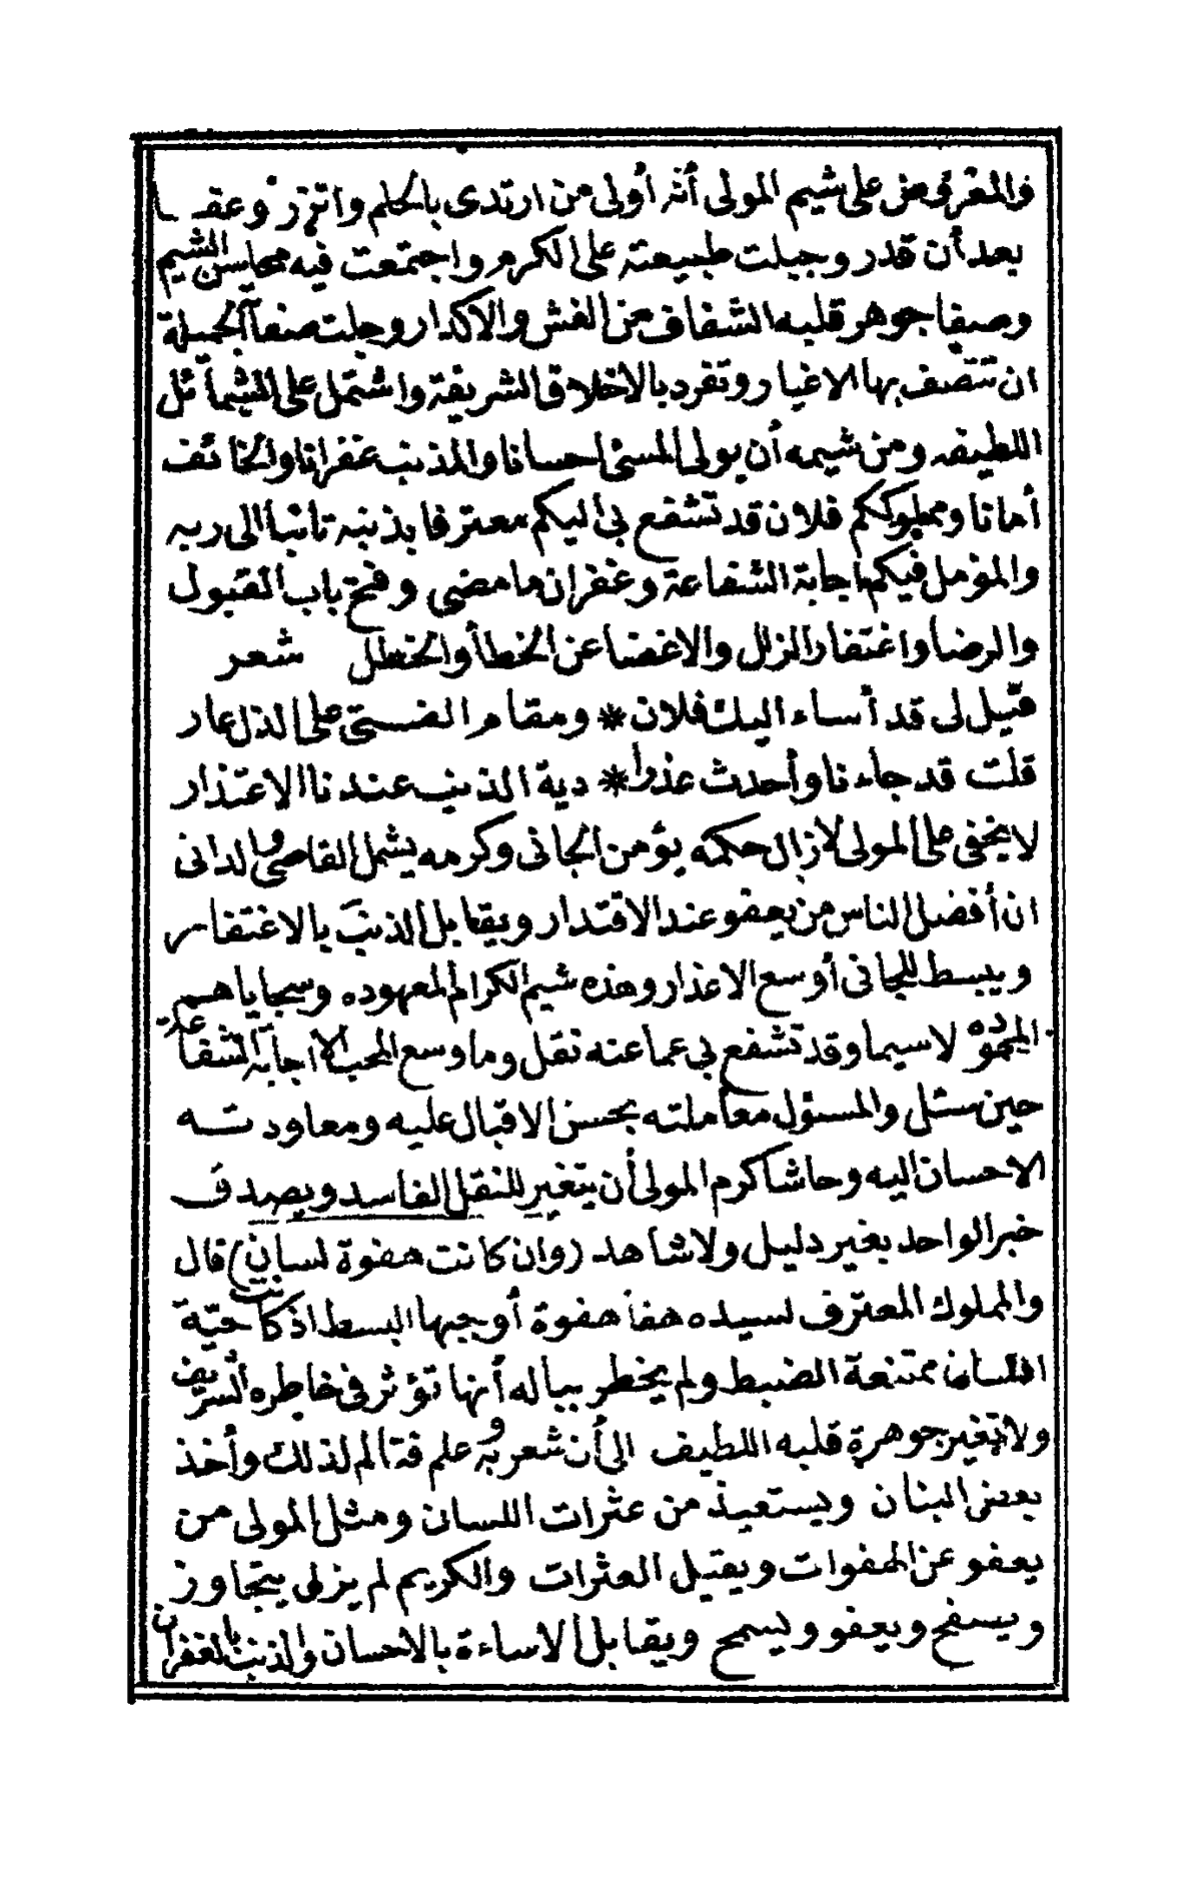 فالمفروض على شيم المولى أنه أولى من ارتدى بالحلم واتزر وعفا
بعد أن قدر وجبلت طبيعته على الكرم واجتمعت فيه محاسن الشيم
وصفا جوهر قلبه الشفاف عن الغش والاكدار وجلت صفاته الجميلة
ان تتصف بها الاغيار وتفرد بالاخلاق الشريفة واشتمل على الشمائل
اللطيفه ومن شيمه أن يولى المسئ احسانا والمذنب غفرانا والخائف
أمانا ومملوككم فلان قد تشفع بى اليكم معترفا بذنبه تائبا الى ربه
والمؤمل فيكم اجابة الشفاعة وغفران ما مضى وفتح باب القبول
والرضا واغتفار الزلل والاغضا عن الخطأ والخطل شعر
قيل لى قد أساء اليك فلان * ومقام الفتى على الذل عار
قلت قد جاءنا وأحدث عذرا * دية الذنب عندنا الاعتذار
لا يخفى على المولى لازال حكمه يؤمن الجانى وكرمه يشمل القاصى والدانى
ان أفضل الناس من يعفو عند الاقتدار ويقابل الذنب بالاغتفار
ويبسط للجانى أوسع الاعذار وهذه شيم الكرام المعهوده وسجاياهم
المحموده لا سيما وقد تشفع بى عما عنه نقل وما وسع المحب الا اجابة الشفاعة
حين سئل والمسئول معاملته بحسن الاقبال عليه ومعاودته
الاحسان اليه وحاشا كرم المولى أن يتغير للنقل الفاسد ويصدق
خبر الواحد بغير دليل ولا شاهد (وان كانت هفوة لسان) قال
والمملوك المعترف لسيده هفا هفوة أوجبها البسط اذ كانت حية
اللسان ممتنعة الضبط ولم يخطر بباله أنها تؤثر فى خاطره الشريف
ولا تغير جوهرة قلبه اللطيف الى أن شعر به وعلم فتألم لذلك وأخذ
بعض البنان ويستعيذ من عثرات اللسان ومثل المولى من
يعفو عن الهفوات ويقيل العثرات والكريم لم يزل يتجاوز
ويسفح ويعفو ويسمح ويقابل الاساءة بالاحسان والذنب بالغفران